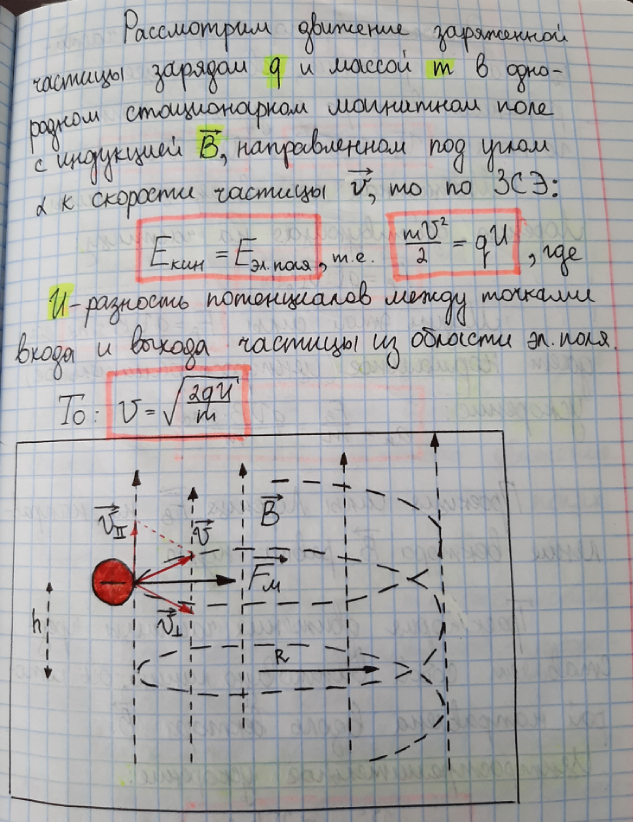 Рассмотрим движение заряженной
частицы зарядом q и массой m в одно-
родном стационарном магнитном поле
с индукцией B⃗, направленном под углом
α к скорости частицы v⃗, то по ЗСЭ:
Eкин = Eэл.поля, т.е. mv²/2 = qU, где
U-разность потенциалов между точками
входа и выхода частицы из области эл. поля.
То: v = √(2qU/m)
v⃗II
v⃗
B⃗
F⃗м
v⃗⊥
h
R